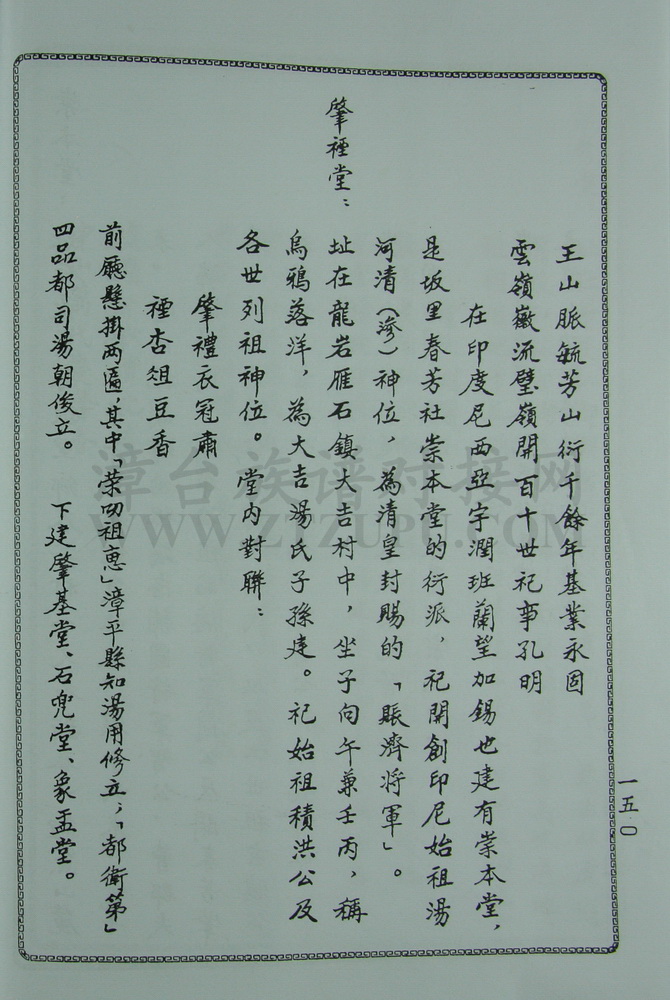 王山脈毓芳山衍千餘年基業永固
雲嶺嶶流璧嶺開百十世祀事孔明
在印度尼西亞宇潤班蘭望加錫也建有崇本堂，
是坂里春芳社崇本堂的衍派，祀開創印尼始祖湯
河清（滲）神位，為清皇封賜的「賬濟將軍」。
肇禋堂：
址在龍岩雁石鎮大吉村中，坐子向午兼壬丙，稱
烏鴉落洋，為大吉湯氏子孫建。祀始祖積洪公及
各世列祖神位。堂內對聯：
肇禮衣冠肅
禋杏俎豆香
前廳懸掛兩匾，其中「荣叨祖惠」漳平縣知湯用修立；「都衛第」
四品都司湯朝俊立。　下建肇基堂、石兜堂、象盂堂。
一五〇
漳台族谱对接网
WWW.ZTZUPU.COM